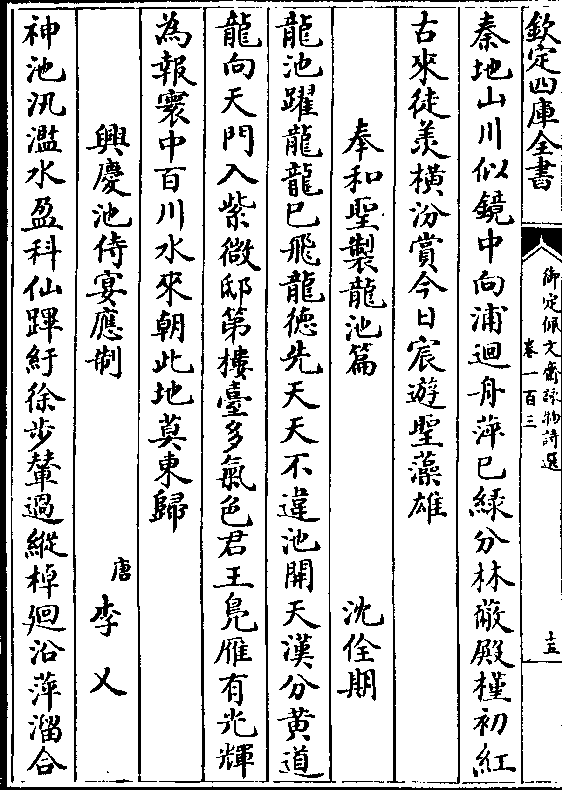 欽定四庫全書
御定佩文齋詠物詩選
卷一百三
十五
秦地山川似鏡中向浦迴舟萍已綠分林蔽殿槿初紅
古來徒羨橫汾賞今日宸遊聖藻雄
奉和聖製龍池篇
沈佺期
龍池躍龍龍已飛龍德先天天不違池開天漢分黃道
龍向天門入紫微邸第樓臺多氣色君王鳧雁有光輝
為報寰中百川水來朝此地莫東歸
興慶池侍宴應制
唐
李乂
神池汎濫水盈科仙蹕紆徐步輦過縱棹廻沿萍溜合